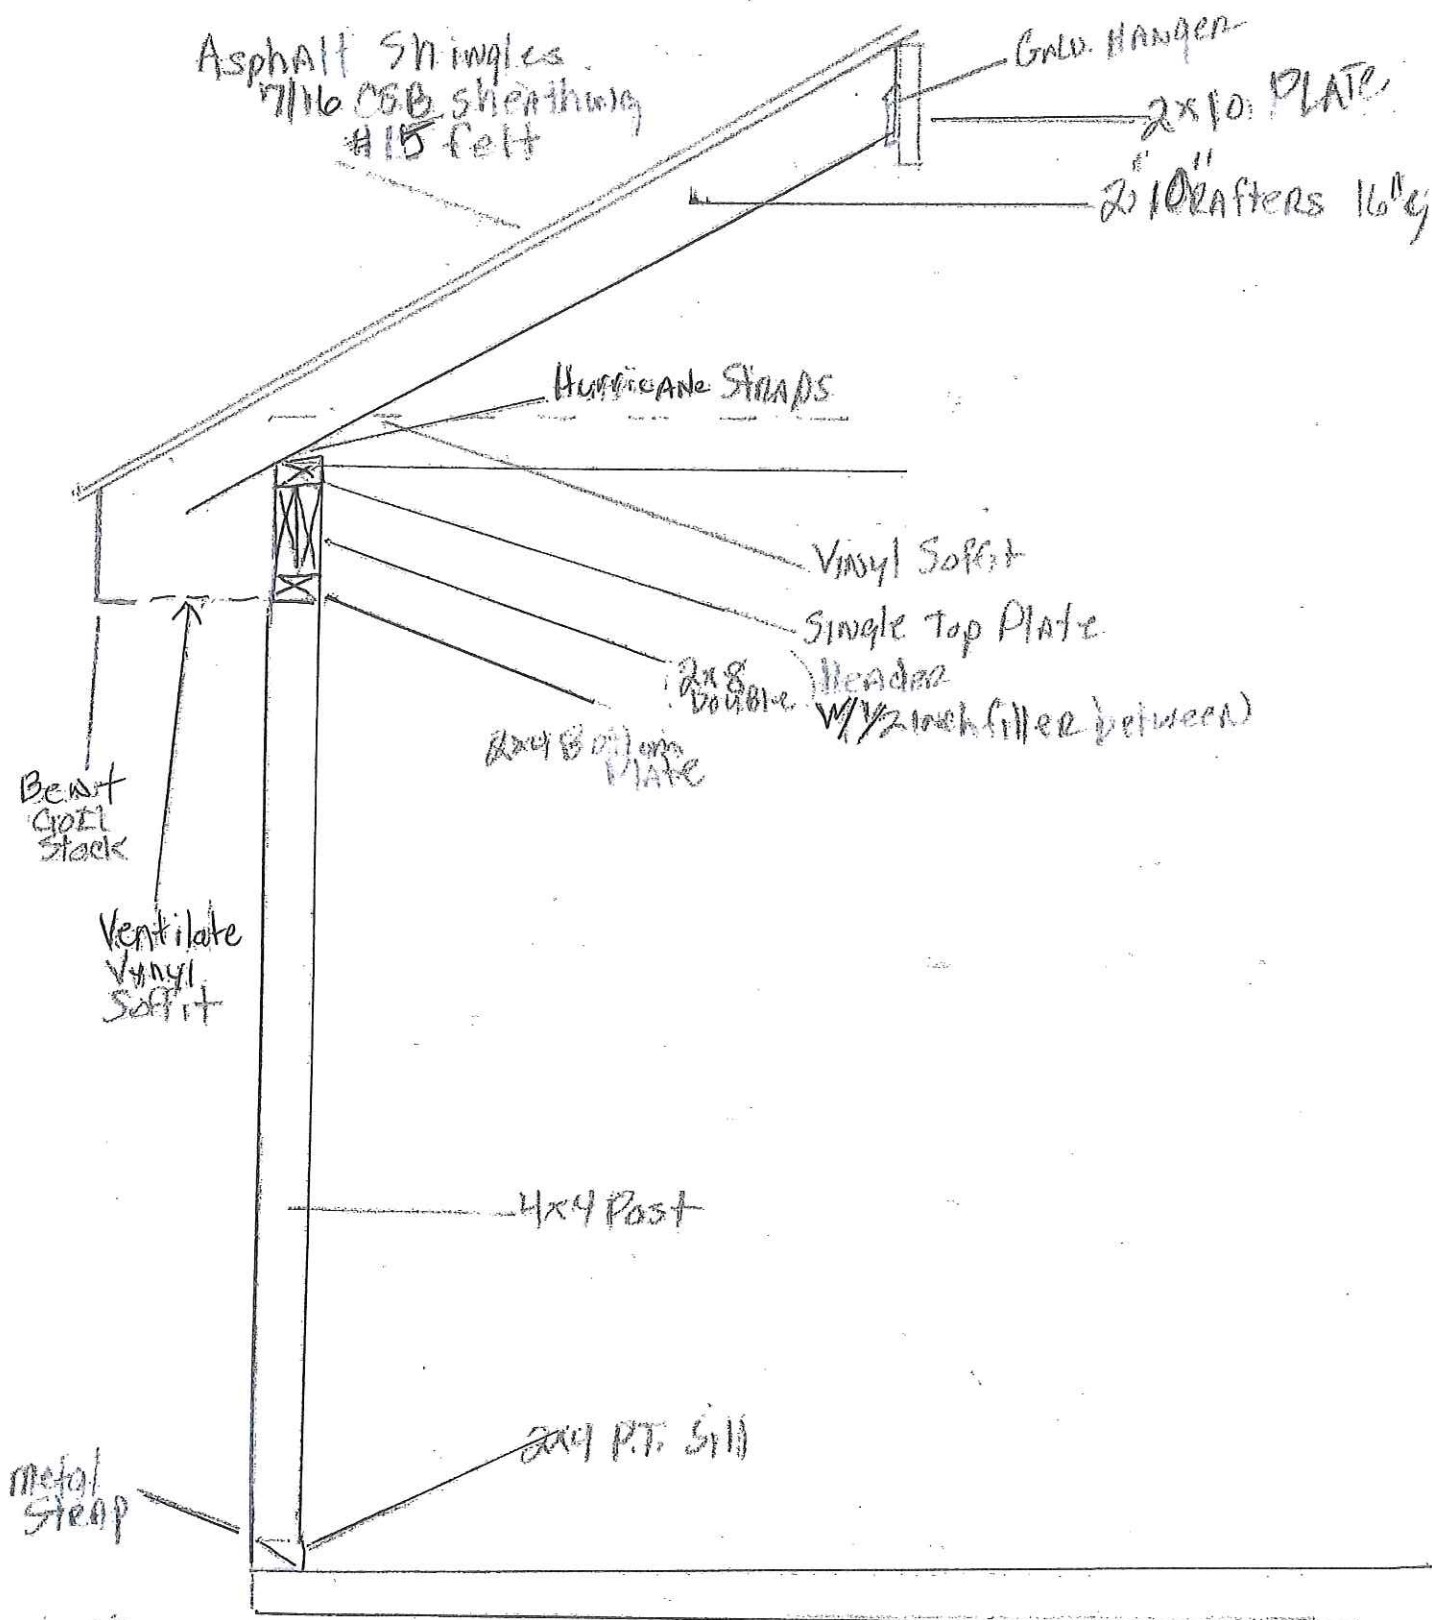 Asphalt Shingles
7/16 OSB sheathing
#15 felt
Galv. HANGER
2x10 PLATE
2"10" RAfters 16"
Hurricane Straps
Vinyl Soffit
Single Top Plate
2x8 Double
Header
W/ 1/2 inch filler between)
2x4 Bottom Plate
Bent
Coil
Stock
Ventilate
Vynyl
Soffit
4x4 Post
2x4 P.T. Sill
metal
Strap